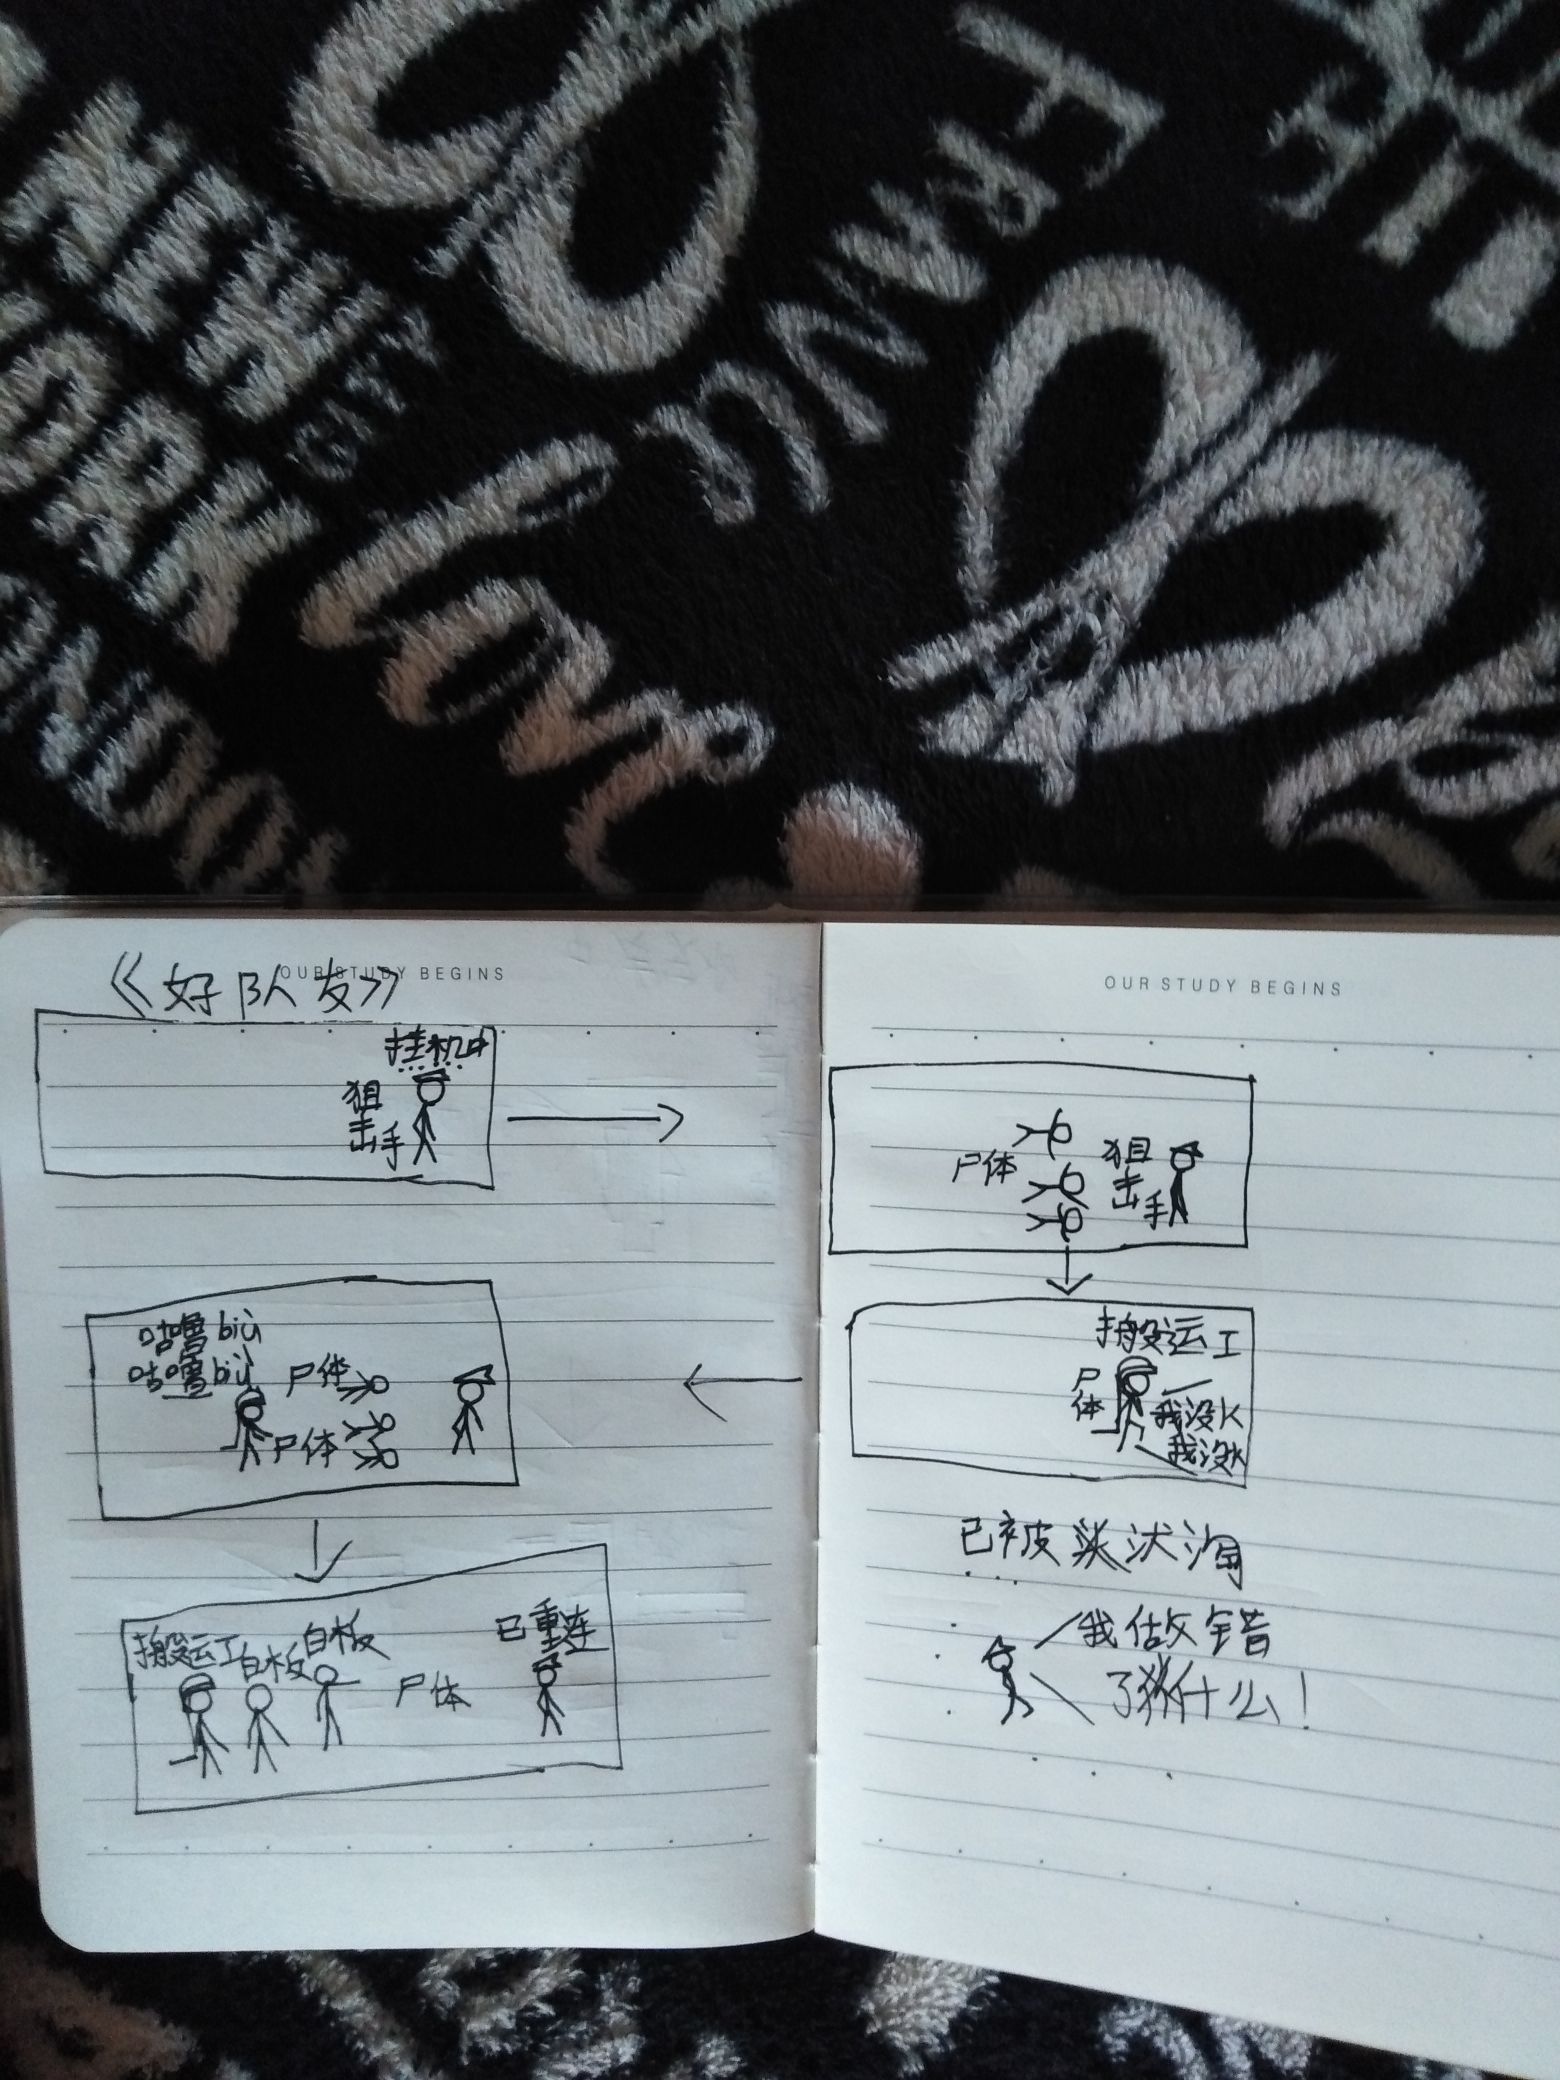 OUR STUDY BEGINS
《好队友》
挂机中
狙
击
手
OUR STUDY BEGINS
尸体
狙
击
手
搬运工
尸
体
我没K
我没K
咕噜biù
咕噜biù
尸体
尸体
搬运工
白板
白板
尸体
已重连
已被
淘
我做错
了
什么！
LOVE